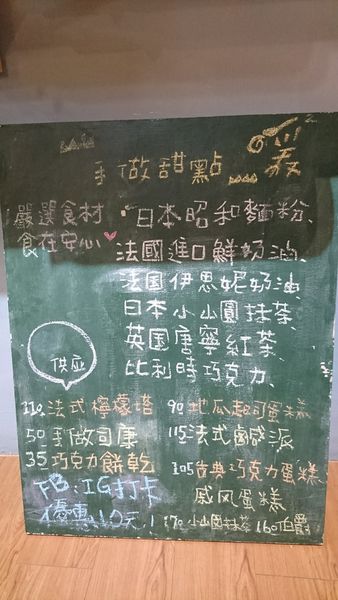 手做甜點
嚴選食材
食在安心
日本昭和麵粉、
法國進口鮮奶油、
法国伊思妮奶油、
日本小山園抹茶、
英国唐寧紅茶、
比利時巧克力、
供应
110.法式檸檬塔
50手做司康
35巧克力餅乾
IG打卡
優惠10元!
90地瓜起司蛋糕
115法式鹹派
105古典巧克力蛋糕、
威风蛋糕
170小山園抹茶 160伯爵